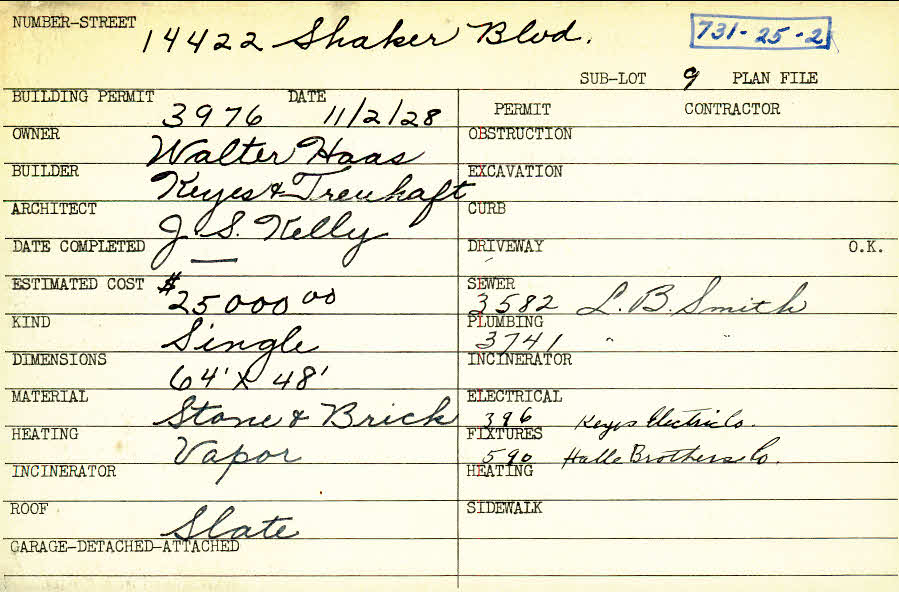 NUMBER-STREET 14422 Shaker Blvd. 731-25-2
SUB-LOT 9 PLAN FILE
BUILDING PERMIT 3976 DATE 11/2/28
OWNER Walter Haas
BUILDER Keyes & Treuhaft
ARCHITECT J. S. Kelly
DATE COMPLETED —
ESTIMATED COST $25000 00
KIND Single
DIMENSIONS 64' x 48'
MATERIAL Stone & Brick
HEATING Vapor
INCINERATOR
ROOF Slate
GARAGE-DETACHED-ATTACHED
PERMIT CONTRACTOR
OBSTRUCTION
EXCAVATION
CURB
DRIVEWAY O.K.
SEWER 3582 L. B. Smith
PLUMBING 3741 " "
INCINERATOR
ELECTRICAL 396 Keyes Electric Co.
FIXTURES 590 Halle Brothers Co.
HEATING
SIDEWALK